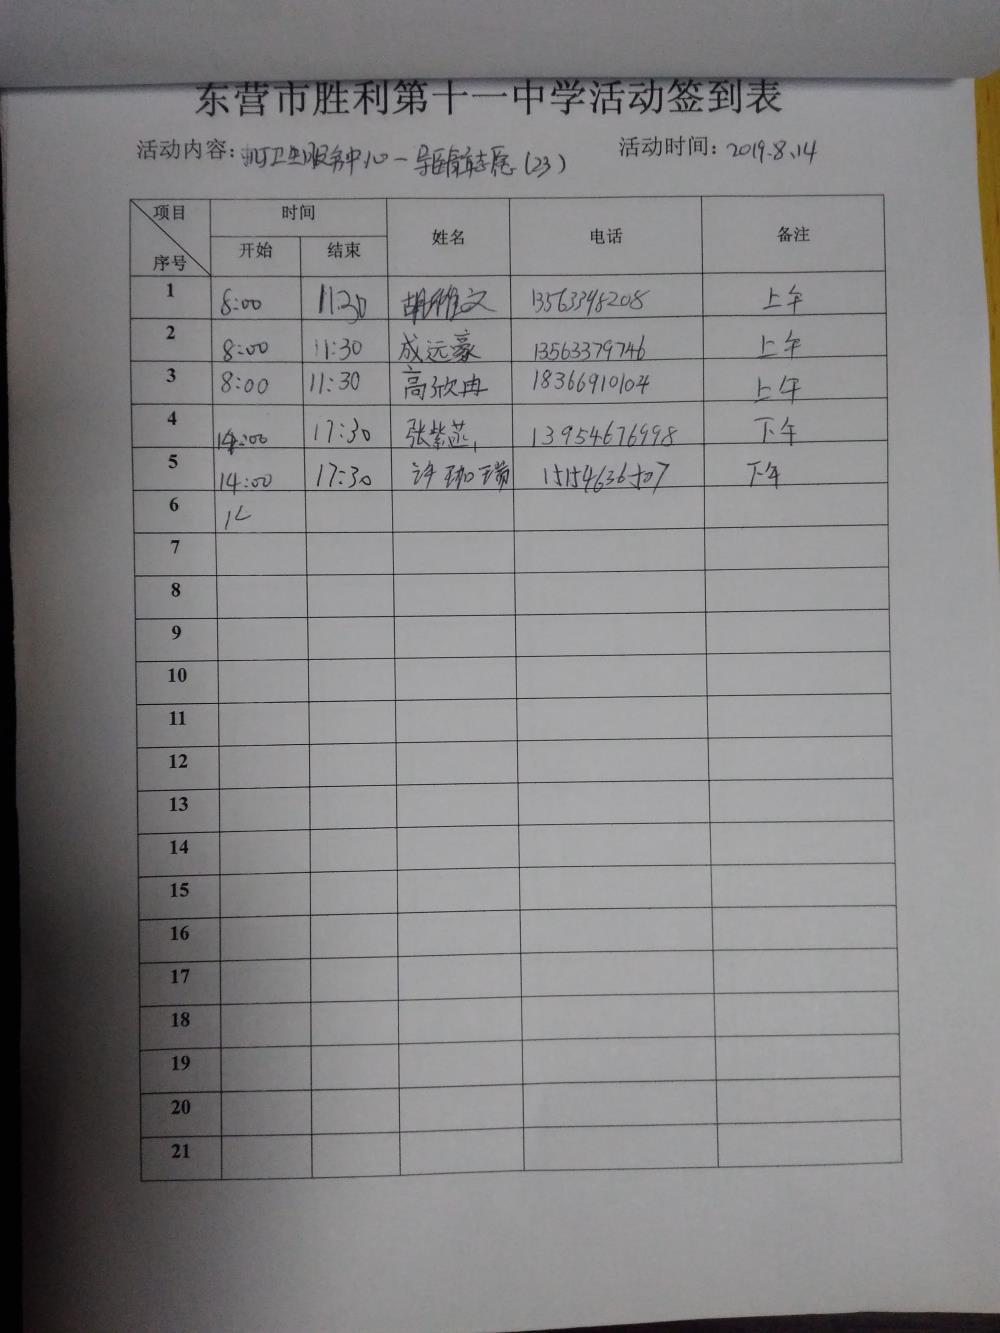 东营市胜利第十一中学活动签到表
活动内容: 卫生服务中心一导医志愿(23) 活动时间: 2019.8.14
项目 时间 姓名 电话 备注
序号 开始 结束
1 8:00 11:30 胡维文 13563398208 上午
2 8:00 11:30 成远豪 13563379746 上午
3 8:00 11:30 高欣冉 18366910104 上午
4 14:00 17:30 张紫 13954676998 下午
5 14:00 17:30 许珈瑞 15154636507 下午
6
7
8
9
10
11
12
13
14
15
16
17
18
19
20
21